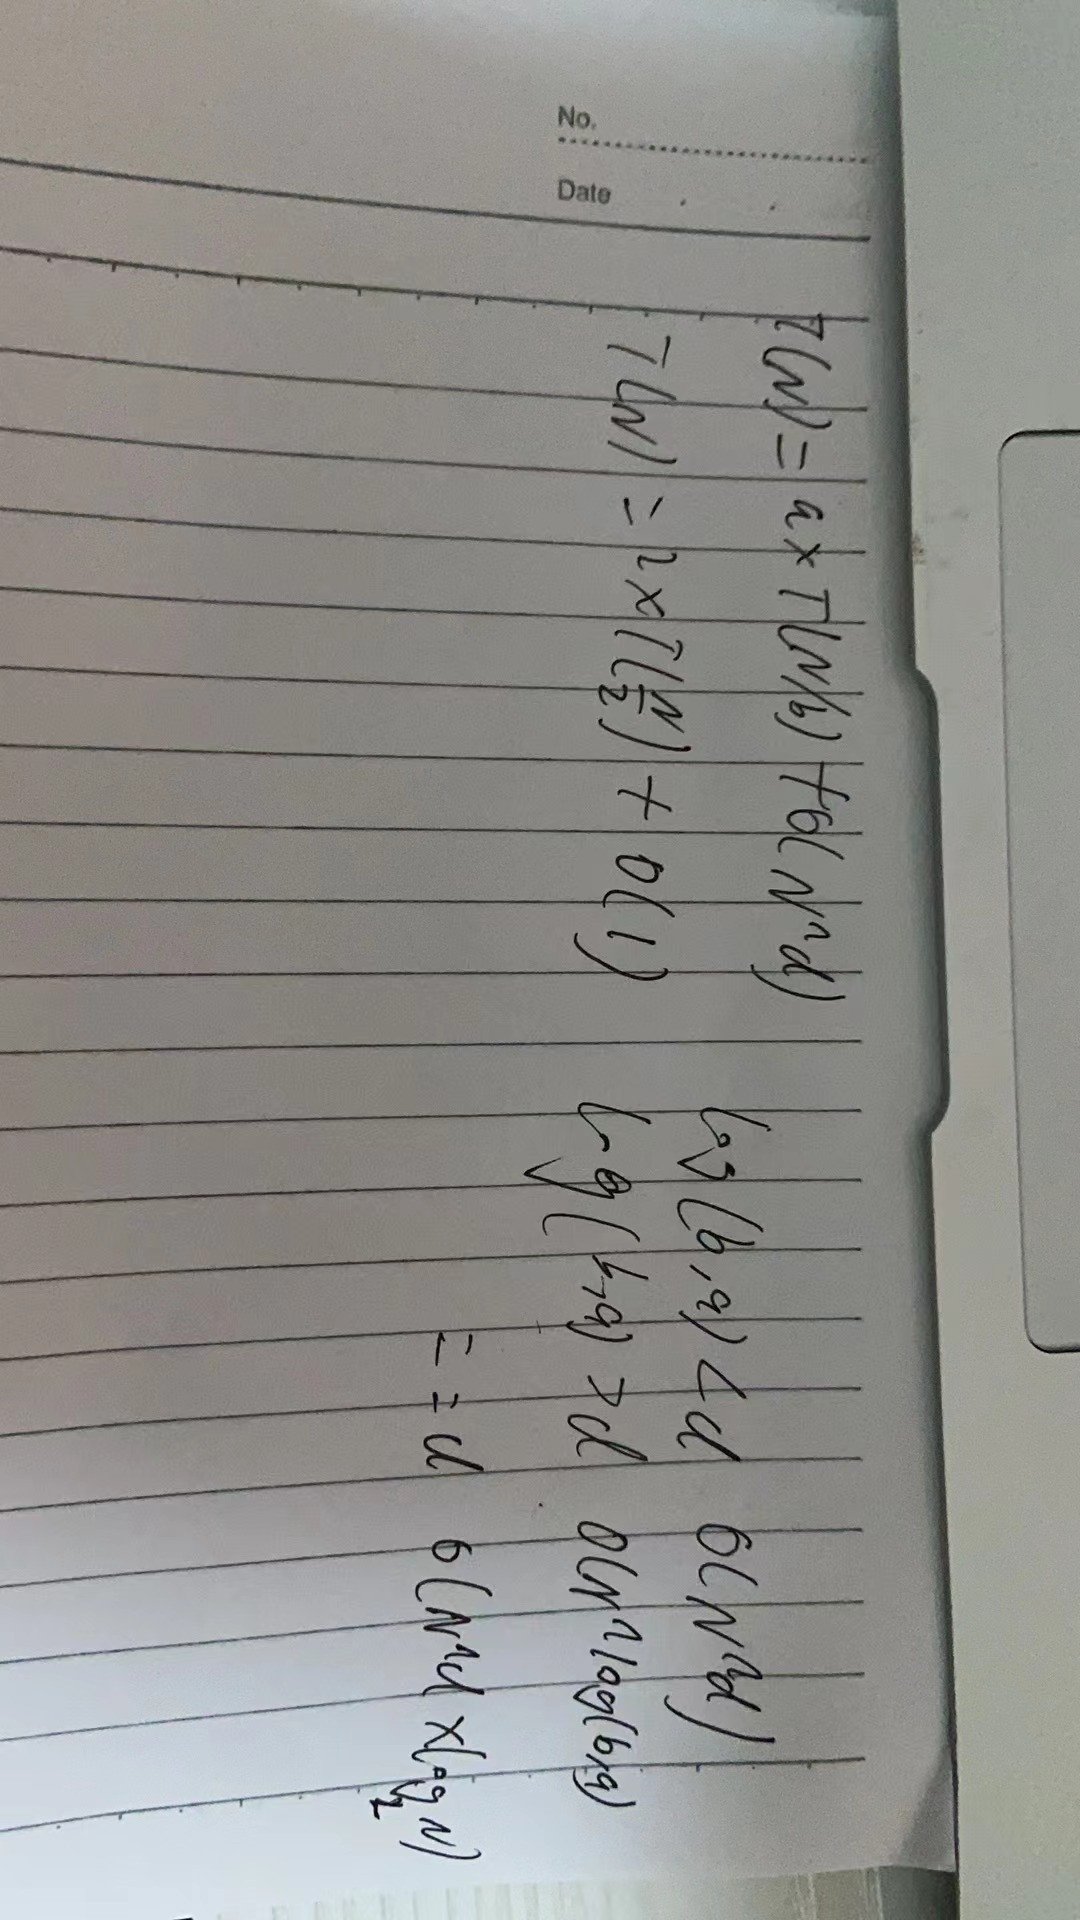 No.
Date
T(N) = a × T(N/b) + O(N^d)
T(N) = 2 × T(N/2) + O(1)
log(b,a) < d O(N^d)
log(b,a) > d O(N^log(b,a))
= = d O(N^d × log₂N)